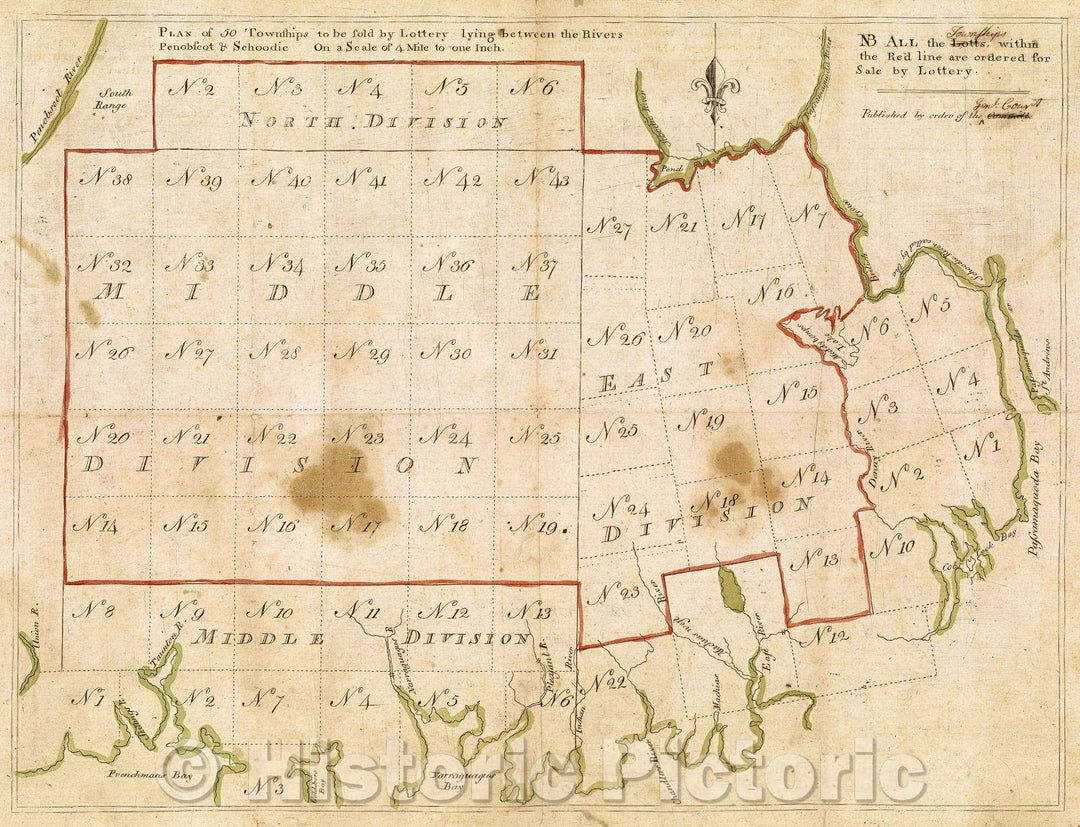 PLAN of 50 Townſhips to be ſold by Lottery lying between the Rivers
Penobſcot & Schoodic On a Scale of 4 Mile to one Inch.
NB ALL the Lotts within
Townſhips
the Red line are ordered for
Sale by Lottery.
Genl. Court
Published by order of the
Penobſcot River
South
Range
No 2 No 3 No 4 No 5 No 6
NORTH DIVISION
Pond
No 38 No 39 No 40 No 41 No 42 No 43
No 27 No 21 No 17 No 7
No 32 No 33 No 34 No 35 No 36 No 37
MIDDLE
No 16
No 6 No 5
Lake
No 26 No 27 No 28 No 29 No 30 No 31
No 26 No 20
EAST
No 15
No 3 No 4
St Andrews
No 20 No 21 No 22 No 23 No 24 No 25
No 25 No 19
DIVISION
No 14
No 2 No 1
Dennys River
Paſsamaquoda Bay
No 14 No 15 No 16 No 17 No 18 No 19
No 24 No 18
DIVISION
No 13
No 10
Bay
No 23
No 12
No 8 No 9 No 10 No 11 No 12 No 13
MIDDLE DIVISION
Union R.
Taunton R.
Narraguagus R
Pleasant R.
Indian River
River
East River
Machias
Chandlers River
No 1 No 2 No 7 No 4 No 5 No 6 No 22
Frenchmans Bay
No 3
Bay
Narraguagus
Bay
© Historic Pictoric